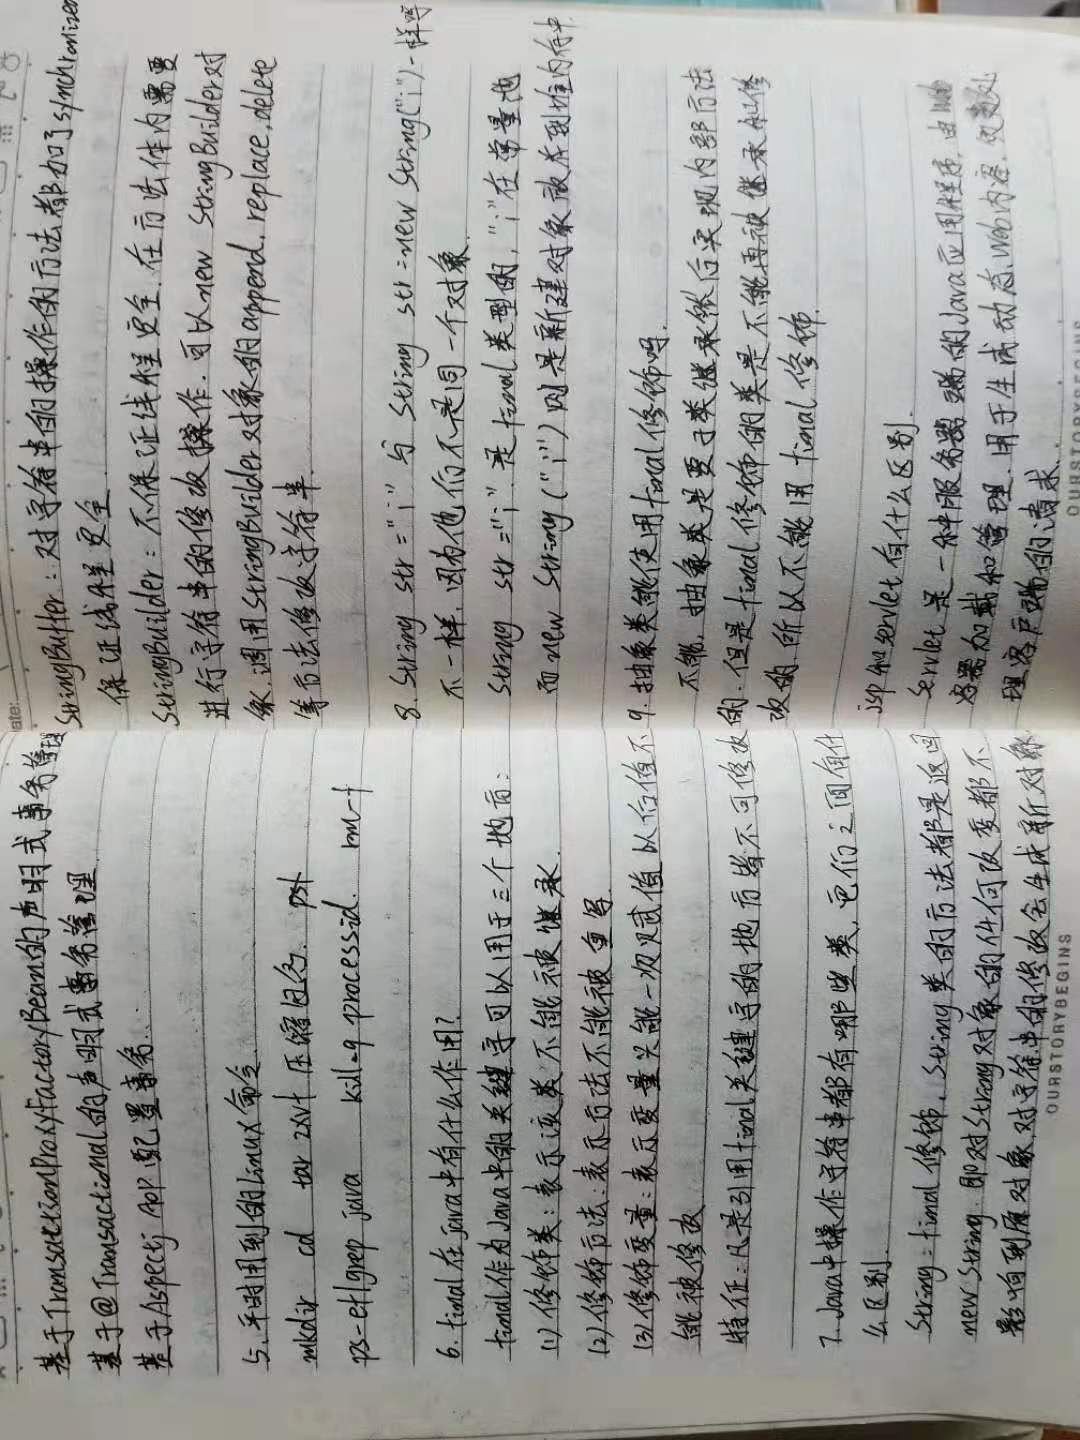 基于TransactionProxyFactoryBean的声明式事务管理
基于@Transactional的声明式事务管理
基于Aspectj AOP配置事务.
5.平时用到的linux命令
mkdir cd tar zxvf 压缩包名. pst
ps-ef|grep java kill-9 processid. rm-f
6.final在java中有什么作用?
final作为Java中的关键字可以用于三个地方:
(1)修饰类:表示该类不能被继承.
(2)修饰方法:表示方法不能被重写
(3)修饰变量:表示变量只能一次赋值以后值不
能被修改
特征:凡是引用final关键字的地方皆不可修改
7.Java中操作字符串都有哪些类,它们之间有什
么区别.
String:final修饰,String类的方法都是返回
new String.即对String对象的任何改变都不
影响到原对象,对字符串的修改会生成新对象
OURSTORYBEGINS
ate:
StringBuffer:对字符串的操作的方法都加了synchronized
保证线程安全.
StringBuilder:不保证线程安全,在方法体内需要
进行字符串的修改操作,可以new StringBuilder对
象,调用StringBuilder对象的append.replace.delete
等方法修改字符串.
8.String str="i"与 String str=new String("i")一样吗
不一样,因为他们不是同一个对象.
String str="i".是final类型的,"i"在常量池
而new String("i")则是新建对象放在到堆内存中
9.抽象类能使用final修饰吗.
不能,抽象类是要子类继承然后实现内部方法
的.但是final修饰的类是不能再被继承和修
改的,所以不能用final修饰.
jsp和servlet有什么区别.
servlet是一种服务器端的Java应用程序,由web
容器加载和管理.用于生成动态Web内容,负责处
理客户端的请求.
OURSTORYBEGINS